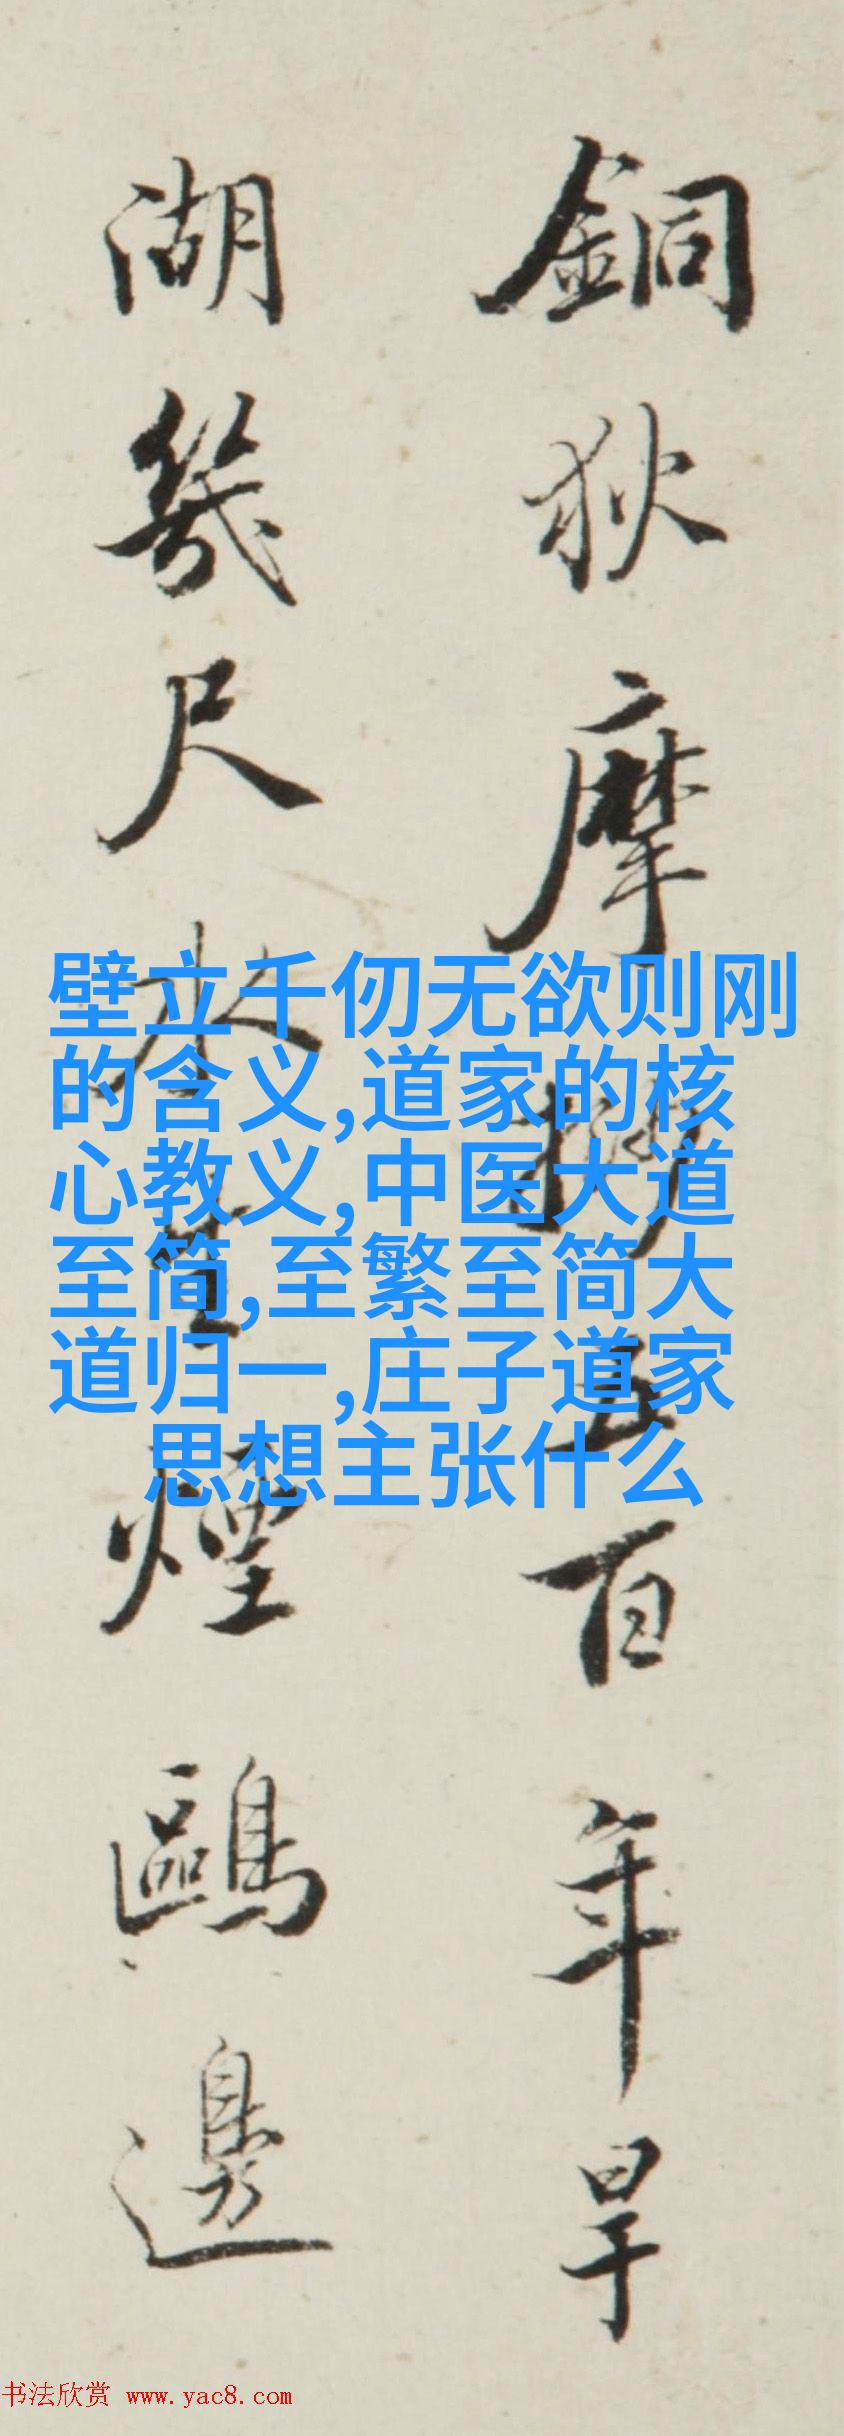 銅狄摩挲五百年旱
湖幾尺水生煙鷗邊
壁立千仞无欲则刚
的含义,道家的核
心教义,中医大道
至简,至繁至简大
道归一,庄子道家
思想主张什么
书法欣赏 www.yac8.com